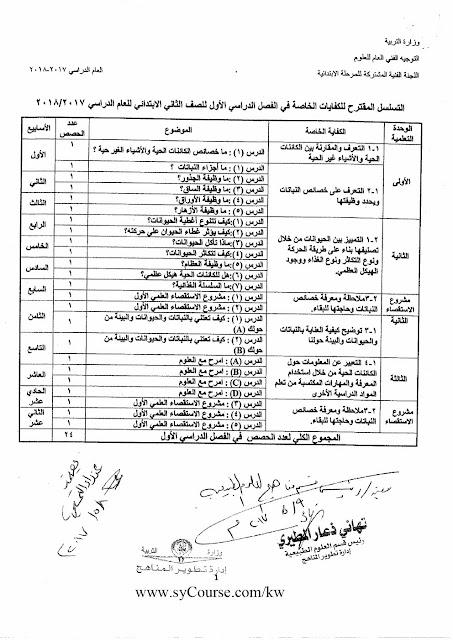 وزارة التربية
التوجيه الفني العام للعلوم
اللجنة الفنية المشتركة للمرحلة الابتدائية
العام الدراسي ٢٠١٧-٢٠١٨
التسلسل المقترح للكفايات الخاصة في الفصل الدراسي الأول للصف الثاني الابتدائي للعام الدراسي ٢٠١٨/٢٠١٧
الوحدة التعلمية
الكفاية الخاصة
الموضوع
عدد الحصص
الأسابيع
الأولى
١-١ التعرف والمقارنة بين الكائنات
الحية والأشياء غير الحية
الدرس (١) : ما خصائص الكائنات الحية والأشياء الغير حية ؟
١
الأول
٢-١ التعرف على خصائص النباتات
ويحدد وظيفتها
الدرس (١) : ما أجزاء النباتات ؟
١
الدرس (٢) :ما وظيفة الجذور؟
١
الثاني
الدرس (٣) :ما وظيفة الساق؟
١
الدرس (٤) :ما وظيفة الأوراق؟
١
الثالث
الدرس (٥) : ما وظيفة الأزهار؟
١
الثانية
١-٢ التمييز بين الحيوانات من خلال
تصنيفها بناء على طريقة الحركة
ونوع التكاثر ونوع الغذاء ووجود
الهيكل العظمي.
الدرس (١) :كيف تتنوع أغطية الحيوانات؟
١
الرابع
الدرس (٢):كيف يؤثر غطاء الحيوان علي حركته؟
١
الدرس (٣):ماذا تأكل الحيوانات؟
١
الخامس
الدرس (٤) :كيف تتكاثر الحيوانات؟
١
الدرس (٥) :ما وظيفة العظام؟
١
السادس
الدرس (٦) :هل للكائنات الحية هيكل عظمي؟
١
الدرس (٧):ما السلسلة الغذائية؟
١
السابع
مشروع الاستقصاء
٢-٣ملاحظة ومعرفة خصائص
النباتات وحاجتها للبقاء.
الدرس (١) : مشروع الاستقصاء العلمي الأول
١
الدرس (٢) : مشروع الاستقصاء العلمي الأول
١
الثامن
الثانية
١-٣ توضيح كيفية العناية بالنباتات
والحيوانات والبيئة حولنا
الدرس (١) : كيف تعتني بالنباتات والحيوانات والبيئة من
حولك (A)
١
الدرس (٢) : كيف تعتني بالنباتات والحيوانات والبيئة من
حولك (B)
١
التاسع
الثالثة
١-٤ التعبير عن المعلومات حول
الكائنات الحية من خلال استخدام
المعرفة والمهارات المكتسبة من تعلم
المواد الدراسية الأخرى
الدرس (A) : امرح مع العلوم
١
الدرس (B) : امرح مع العلوم
١
العاشر
الدرس (C) : امرح مع العلوم
١
الدرس (D) : امرح مع العلوم
١
الحادي عشر
مشروع الاستقصاء
٢-٣ملاحظة ومعرفة خصائص
النباتات وحاجتها للبقاء.
الدرس (٣) : مشروع الاستقصاء العلمي الأول
١
الدرس (٤) : مشروع الاستقصاء العلمي الأول
١
الثاني عشر
الدرس (٥) : مشروع الاستقصاء العلمي الأول
١
المجموع الكلي لعدد الحصص في الفصل الدراسي الأول
٢٤
تهاني ذعار المطيري
رئيس قسم العلوم الطبيعية
إدارة تطوير المناهج
وزارة التربية
إدارة تطوير المناهج
1
www.syCourse.com/kw